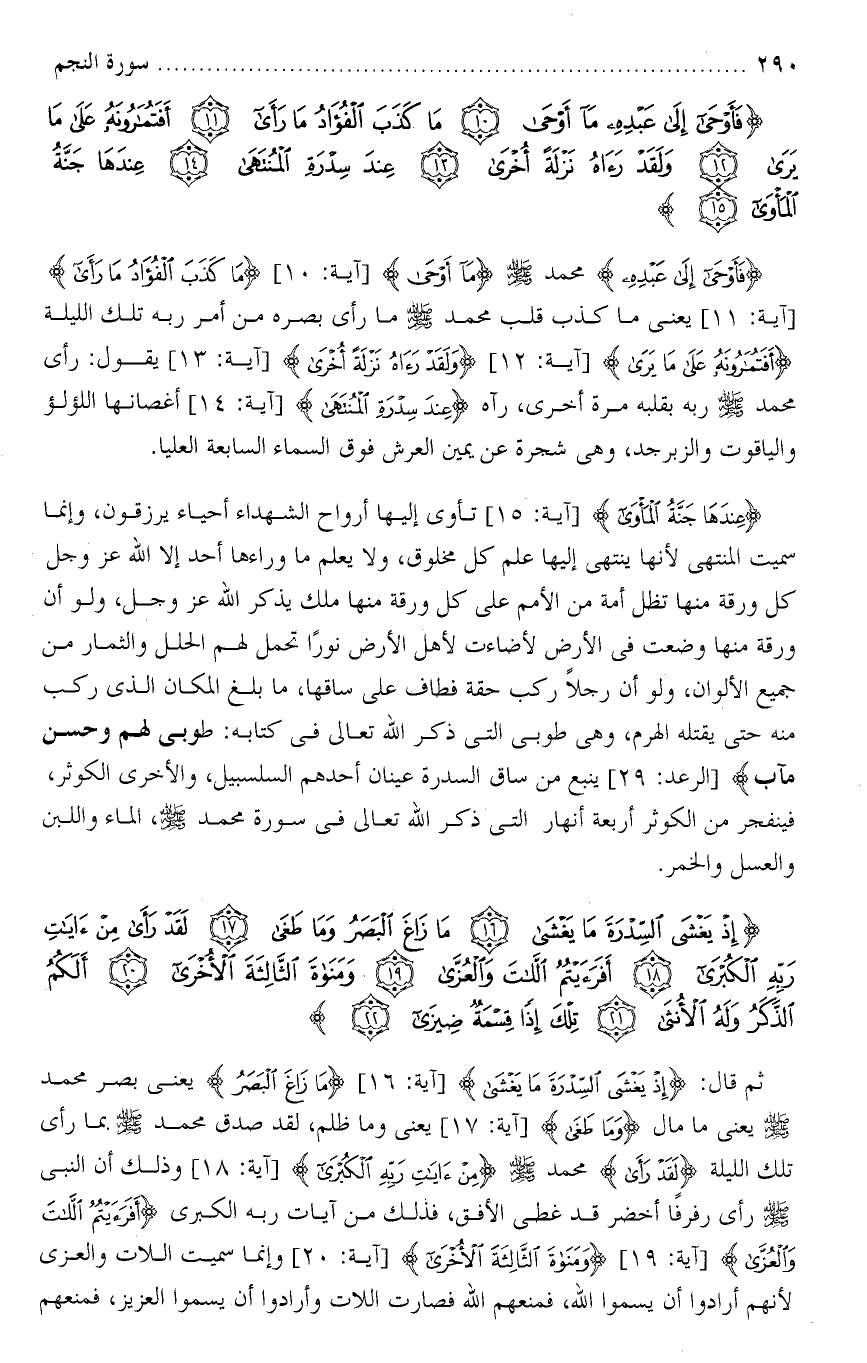 ٢٩٠ ........................................................................ سورة النجم
﴿فَأَوْحَىٰٓ إِلَىٰ عَبْدِهِۦ مَآ أَوْحَىٰ ﴿١٠﴾ مَا كَذَبَ ٱلْفُؤَادُ مَا رَأَىٰٓ ﴿١١﴾ أَفَتُمَٰرُونَهُۥ عَلَىٰ مَا
يَرَىٰ ﴿١٢﴾ وَلَقَدْ رَءَاهُ نَزْلَةً أُخْرَىٰ ﴿١٣﴾ عِندَ سِدْرَةِ ٱلْمُنتَهَىٰ ﴿١٤﴾ عِندَهَا جَنَّةُ
ٱلْمَأْوَىٰٓ ﴿١٥﴾ ﴾
﴿فَأَوْحَىٰٓ إِلَىٰ عَبْدِهِۦ ﴾ محمد ﷺ ﴿مَآ أَوْحَىٰ ﴾ [آية: ١٠] ﴿مَا كَذَبَ ٱلْفُؤَادُ مَا رَأَىٰٓ ﴾
[آية: ١١] يعنى ما كذب قلب محمد ﷺ ما رأى بصره من أمر ربه تلك الليلة
﴿أَفَتُمَٰرُونَهُۥ عَلَىٰ مَا يَرَىٰ ﴾ [آية: ١٢] ﴿وَلَقَدْ رَءَاهُ نَزْلَةً أُخْرَىٰ ﴾ [آية: ١٣] يقول: رأى
محمد ﷺ ربه بقلبه مرة أخرى، رآه ﴿عِندَ سِدْرَةِ ٱلْمُنتَهَىٰ ﴾ [آية: ١٤] أغصانها اللؤلؤ
والياقوت والزبرجد، وهى شجرة عن يمين العرش فوق السماء السابعة العليا.
﴿عِندَهَا جَنَّةُ ٱلْمَأْوَىٰٓ ﴾ [آية: ١٥] تأوى إليها أرواح الشهداء أحياء يرزقون، وإنما
سميت المنتهى لأنها ينتهى إليها علم كل مخلوق، ولا يعلم ما وراءها أحد إلا الله عز وجل
كل ورقة منها تظل أمة من الأمم على كل ورقة منها ملك يذكر الله عز وجل، ولو أن
ورقة منها وضعت فى الأرض لأضاءت لأهل الأرض نورًا تحمل لهم الحلل والثمار من
جميع الألوان، ولو أن رجلاً ركب حقة فطاف على ساقها، ما بلغ المكان الذى ركب
منه حتى يقتله الهرم، وهى طوبى التى ذكر الله تعالى فى كتابه: طوبى لهم وحسن
مآب﴾ [الرعد: ٢٩] ينبع من ساق السدرة عينان أحدهم السلسبيل، والأخرى الكوثر،
فينفجر من الكوثر أربعة أنهار التى ذكر الله تعالى فى سورة محمد ﷺ، الماء واللبن
والعسل والخمر.
﴿إِذْ يَغْشَى ٱلسِّدْرَةَ مَا يَغْشَىٰ ﴿١٦﴾ مَا زَاغَ ٱلْبَصَرُ وَمَا طَغَىٰ ﴿١٧﴾ لَقَدْ رَأَىٰ مِنْ ءَايَٰتِ
رَبِّهِ ٱلْكُبْرَىٰٓ ﴿١٨﴾ أَفَرَءَيْتُمُ ٱللَّٰتَ وَٱلْعُزَّىٰ ﴿١٩﴾ وَمَنَوٰةَ ٱلثَّالِثَةَ ٱلْأُخْرَىٰٓ ﴿٢٠﴾ أَلَكُمُ
ٱلذَّكَرُ وَلَهُ ٱلْأُنثَىٰ ﴿٢١﴾ تِلْكَ إِذًا قِسْمَةٌ ضِيزَىٰٓ ﴿٢٢﴾ ﴾
ثم قال: ﴿إِذْ يَغْشَى ٱلسِّدْرَةَ مَا يَغْشَىٰ ﴾ [آية: ١٦] ﴿مَا زَاغَ ٱلْبَصَرُ ﴾ يعنى بصر محمد
ﷺ يعنى ما مال ﴿وَمَا طَغَىٰ ﴾ [آية: ١٧] يعنى وما ظلم، لقد صدق محمد ﷺ بما رأى
تلك الليلة ﴿لَقَدْ رَأَىٰ ﴾ محمد ﷺ ﴿مِنْ ءَايَٰتِ رَبِّهِ ٱلْكُبْرَىٰٓ ﴾ [آية: ١٨] وذلك أن النبى
ﷺ رأى رفرفًا أخضر قد غطى الأفق، فذلك من آيات ربه الكبرى ﴿أَفَرَءَيْتُمُ ٱللَّٰتَ
وَٱلْعُزَّىٰ ﴾ [آية: ١٩] ﴿وَمَنَوٰةَ ٱلثَّالِثَةَ ٱلْأُخْرَىٰٓ ﴾ [آية: ٢٠] وإنما سميت اللات والعزى
لأنهم أرادوا أن يسموا الله، فمنعهم الله فصارت اللات وأرادوا أن يسموا العزيز، فمنعهم